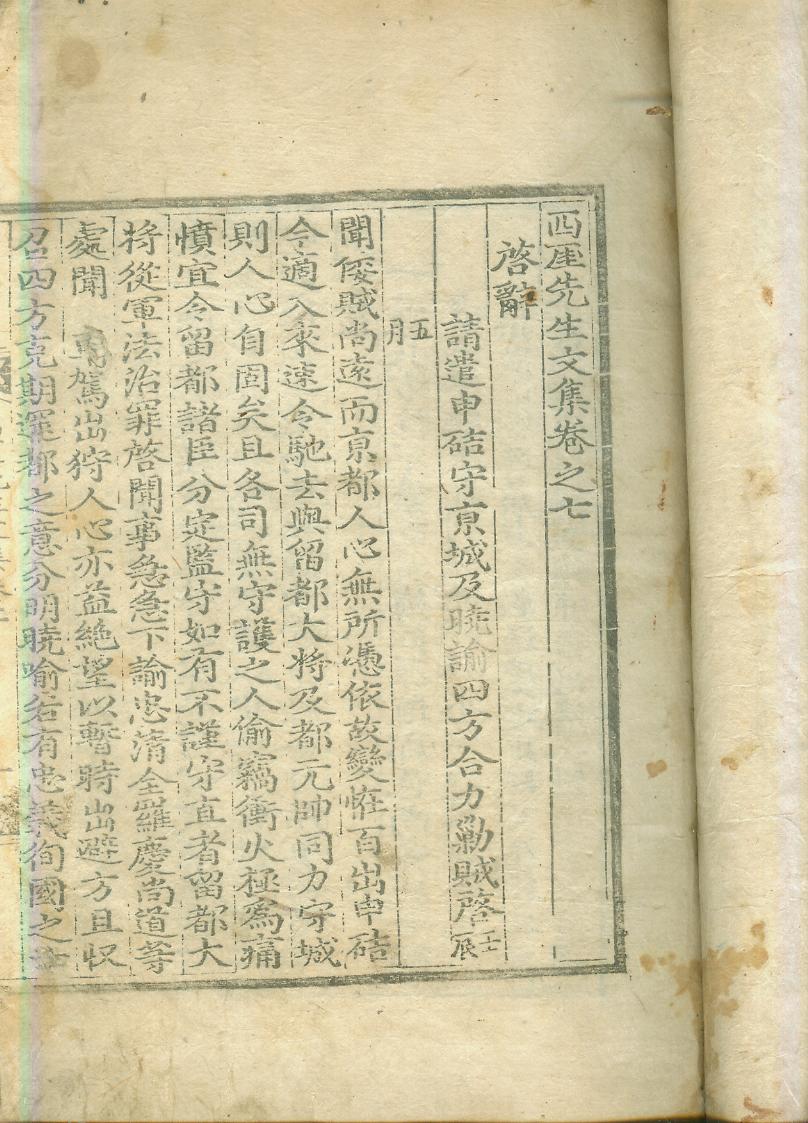 西厓先生文集卷之七
啓辭
請遣申硈守京城及曉諭四方合力勦賊啓壬辰
五月
聞倭賊尚遠而京都人心無所憑依故變恠百出申硈
今適入來速令馳去與留都大將及都元帥同力守城
則人心自固矣且各司無守護之人偷竊衝火極爲痛
憤宜令留都諸臣分定監守如有不謹守直者留都大
將從軍法治罪啓聞事急急下諭忠淸全羅慶尚道等
處聞 車駕出狩人心亦益絶望以暫時出避方且收
召四方克期還都之意分明曉喻若有忠義徇國之